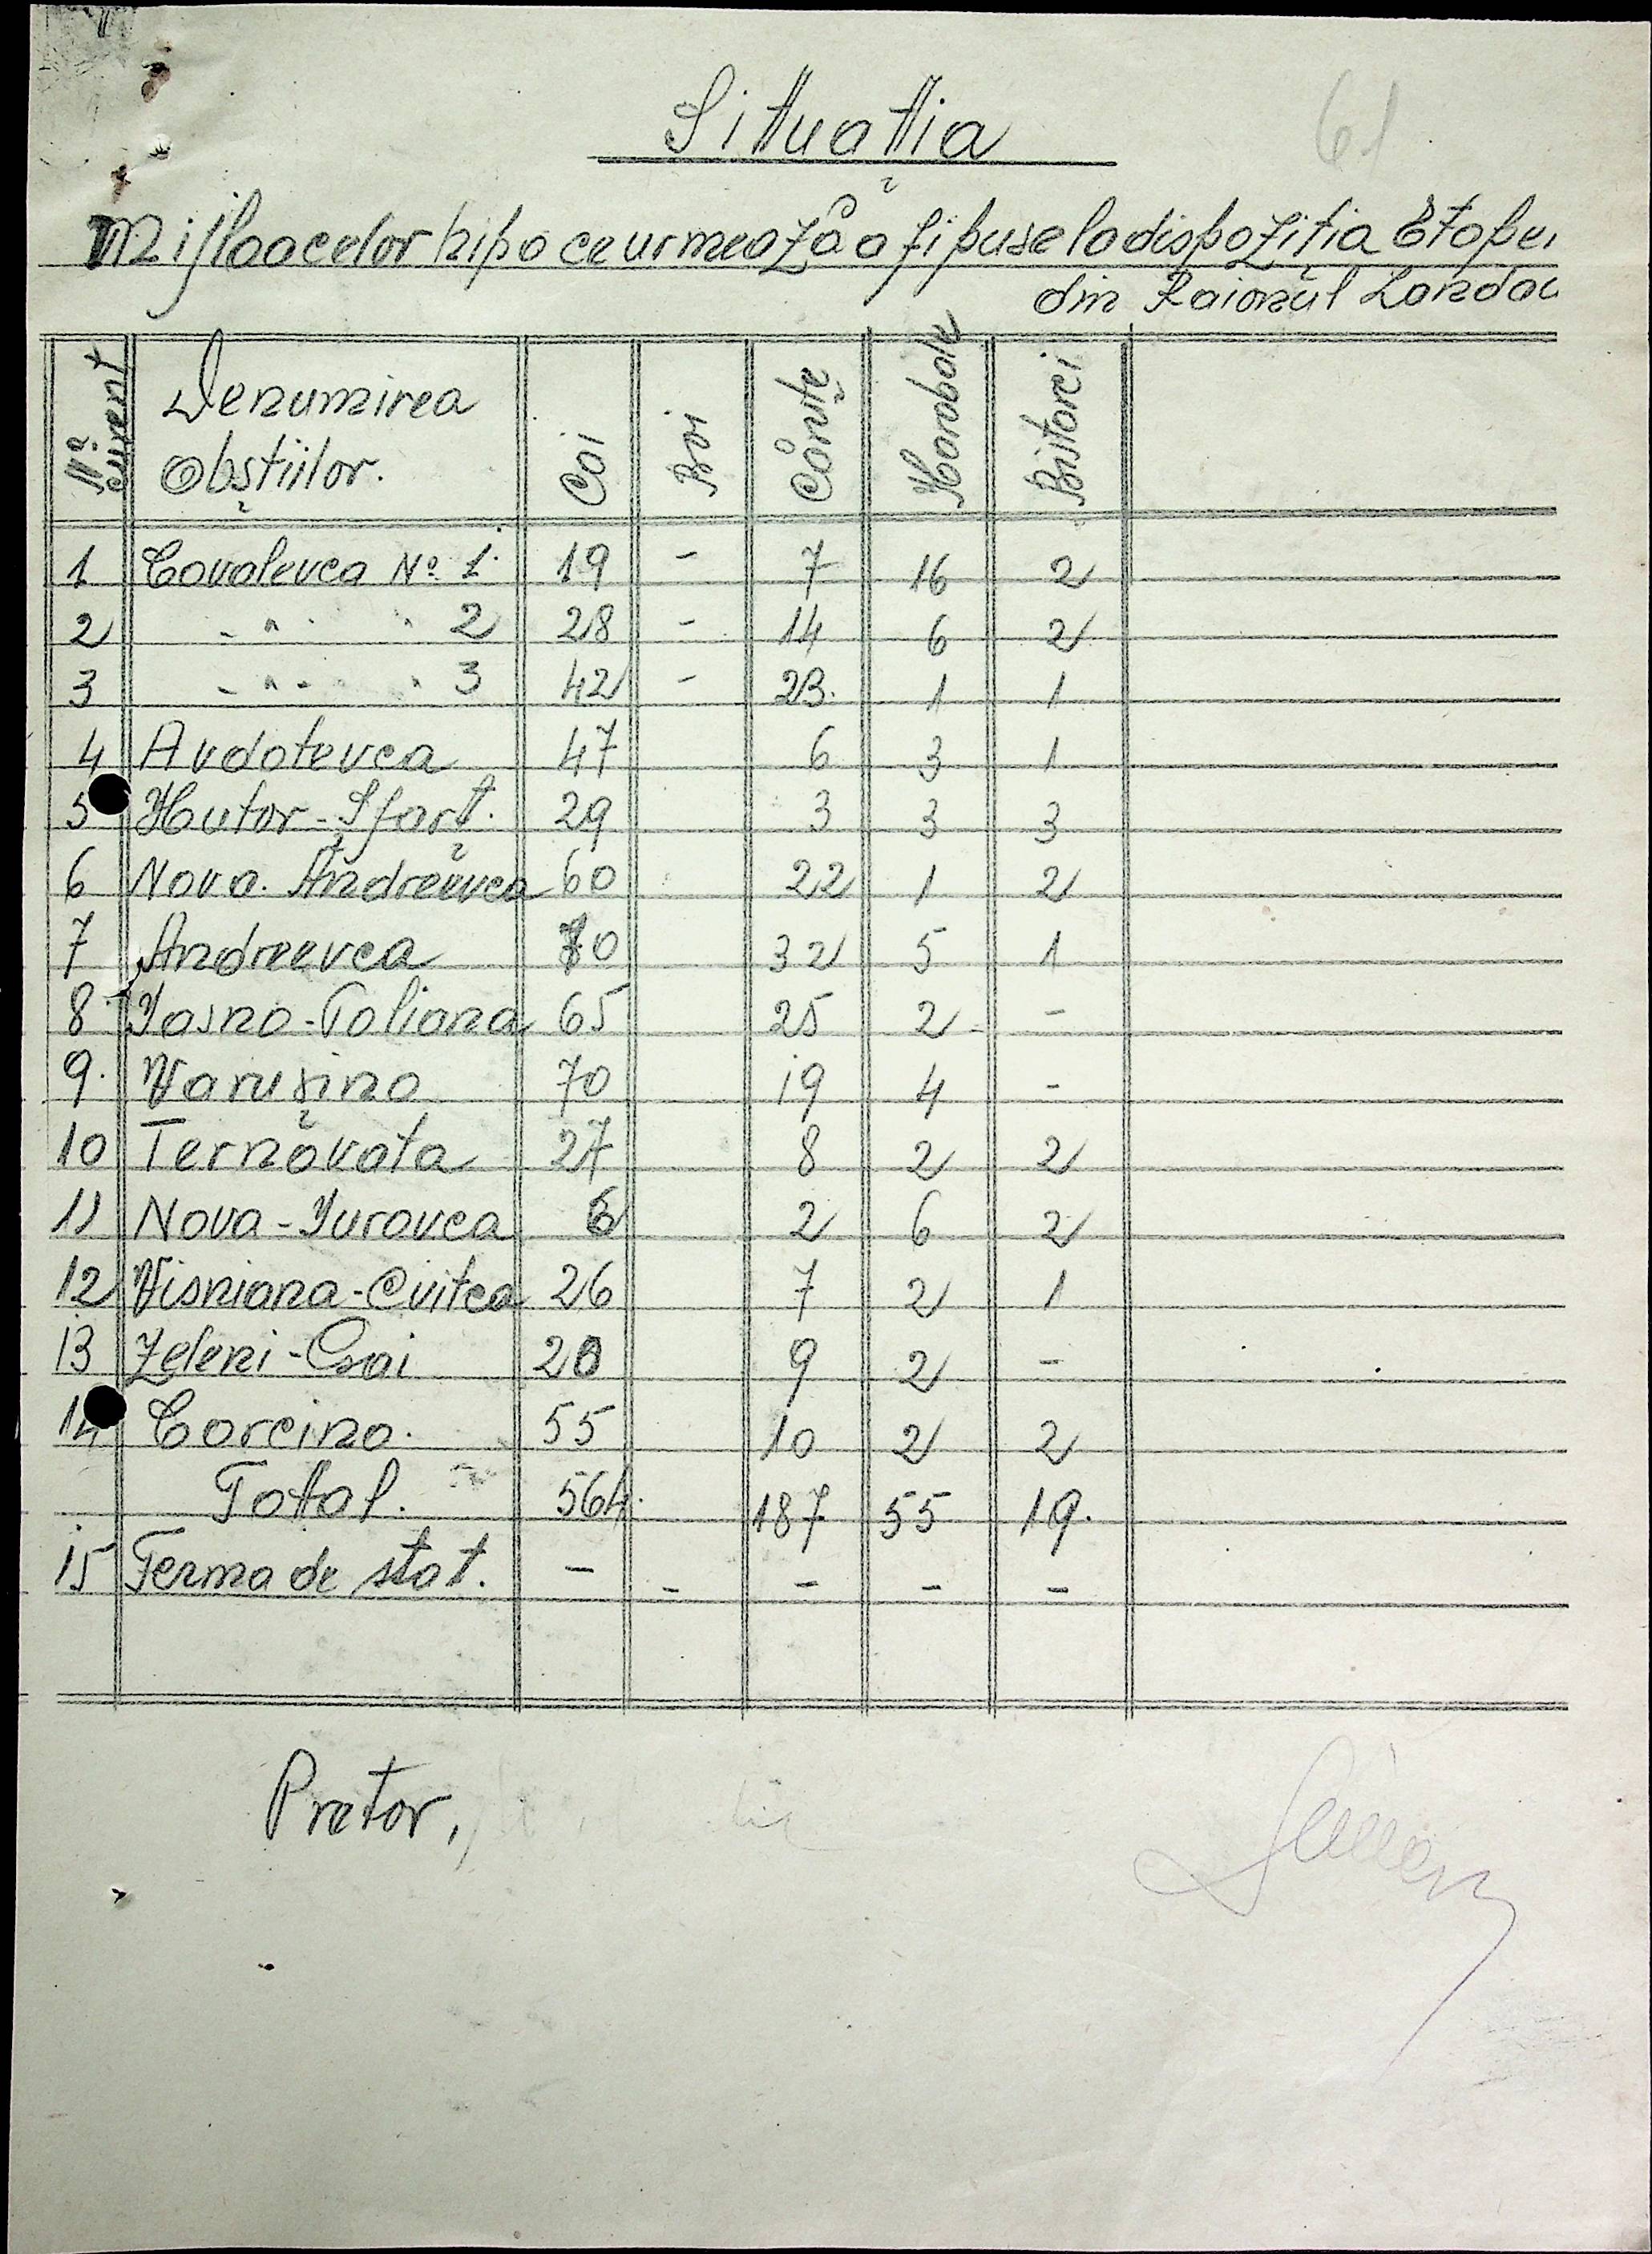 61
Situația
Mijloacelor hipo ce urmează a fi puse la dispoziția Etapei
din Raionul Landau
No. curent Denumirea Obștiilor. Cai Boi Căruțe Harabale Bistarci
1 Covalevca No. 1. 19 - 7 16 2
2 - " - " 2 28 - 14 6 2
3 - " - " 3 42 - 23. 1 1
4 Avdotevca 47 6 3 1
5 Hutor-Șfarț. 29 3 3 3
6 Nova. Andreevca 60 22 1 2
7 Andreevca 70 32 5 1
8 Iasno-Poliana 65 25 2 - -
9. Varușino 70 19 4 -
10 Ternovata 27 8 2 2
11 Nova-Iuravca 6 2 6 2
12 Visniana-Cvitca 26 7 2 1
13 Zeleni-Crai 20 9 2 -
14 Corcino. 55 10 2 2
Total. 564. 187 55 19.
15 Ferma de stat. - - - - -
Pretor,